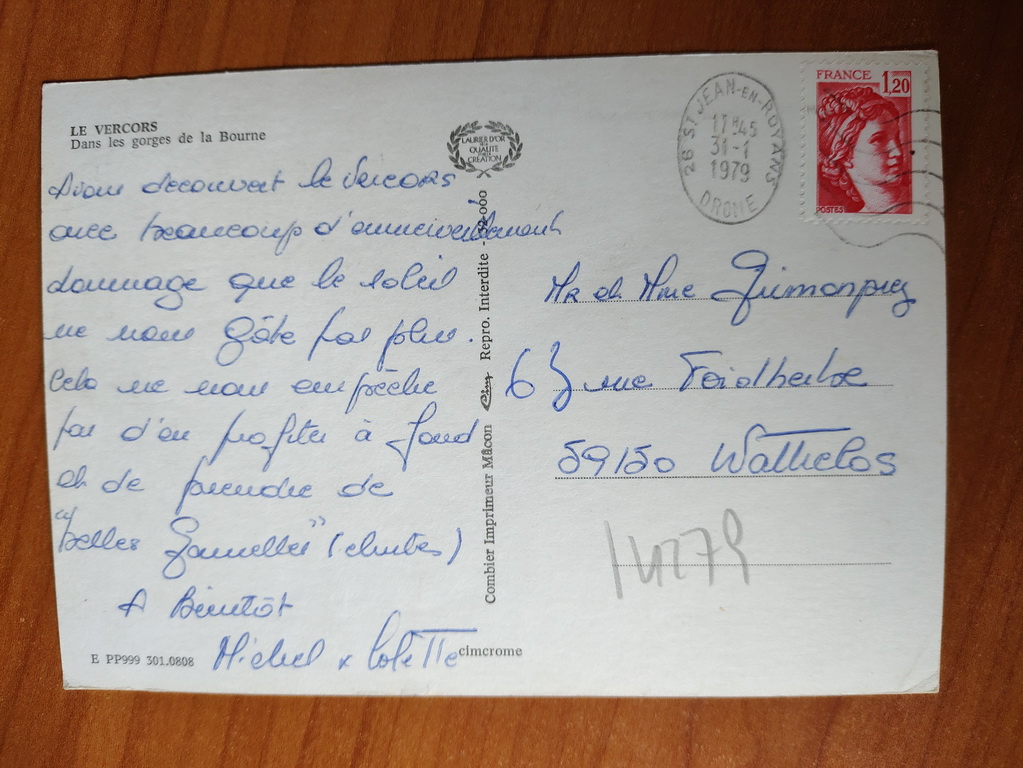 LE VERCORS
Dans les gorges de la Bourne
LAURIER D'OR
QUALITÉ
CRÉATION
26 ST JEAN-EN-ROYANS
17H45
31-1
1979
DROME
FRANCE 1,20
POSTES
Avons découvert le Vercors
avec beaucoup d'émerveillement
dommage que le soleil
ne nous gâte pas plus.
Cela ne nous empêche
pas d'en profiter à fond
et de prendre de
"belles gamelles" (chutes)
A Bientôt
Michel & Colette
Mr et Mme
63 rue Faidherbe
59150 Wattrelos
14279
Combier Imprimeur Mâcon Cim Repro. Interdite - 32-000
E PP999 301.0808
cimcrome